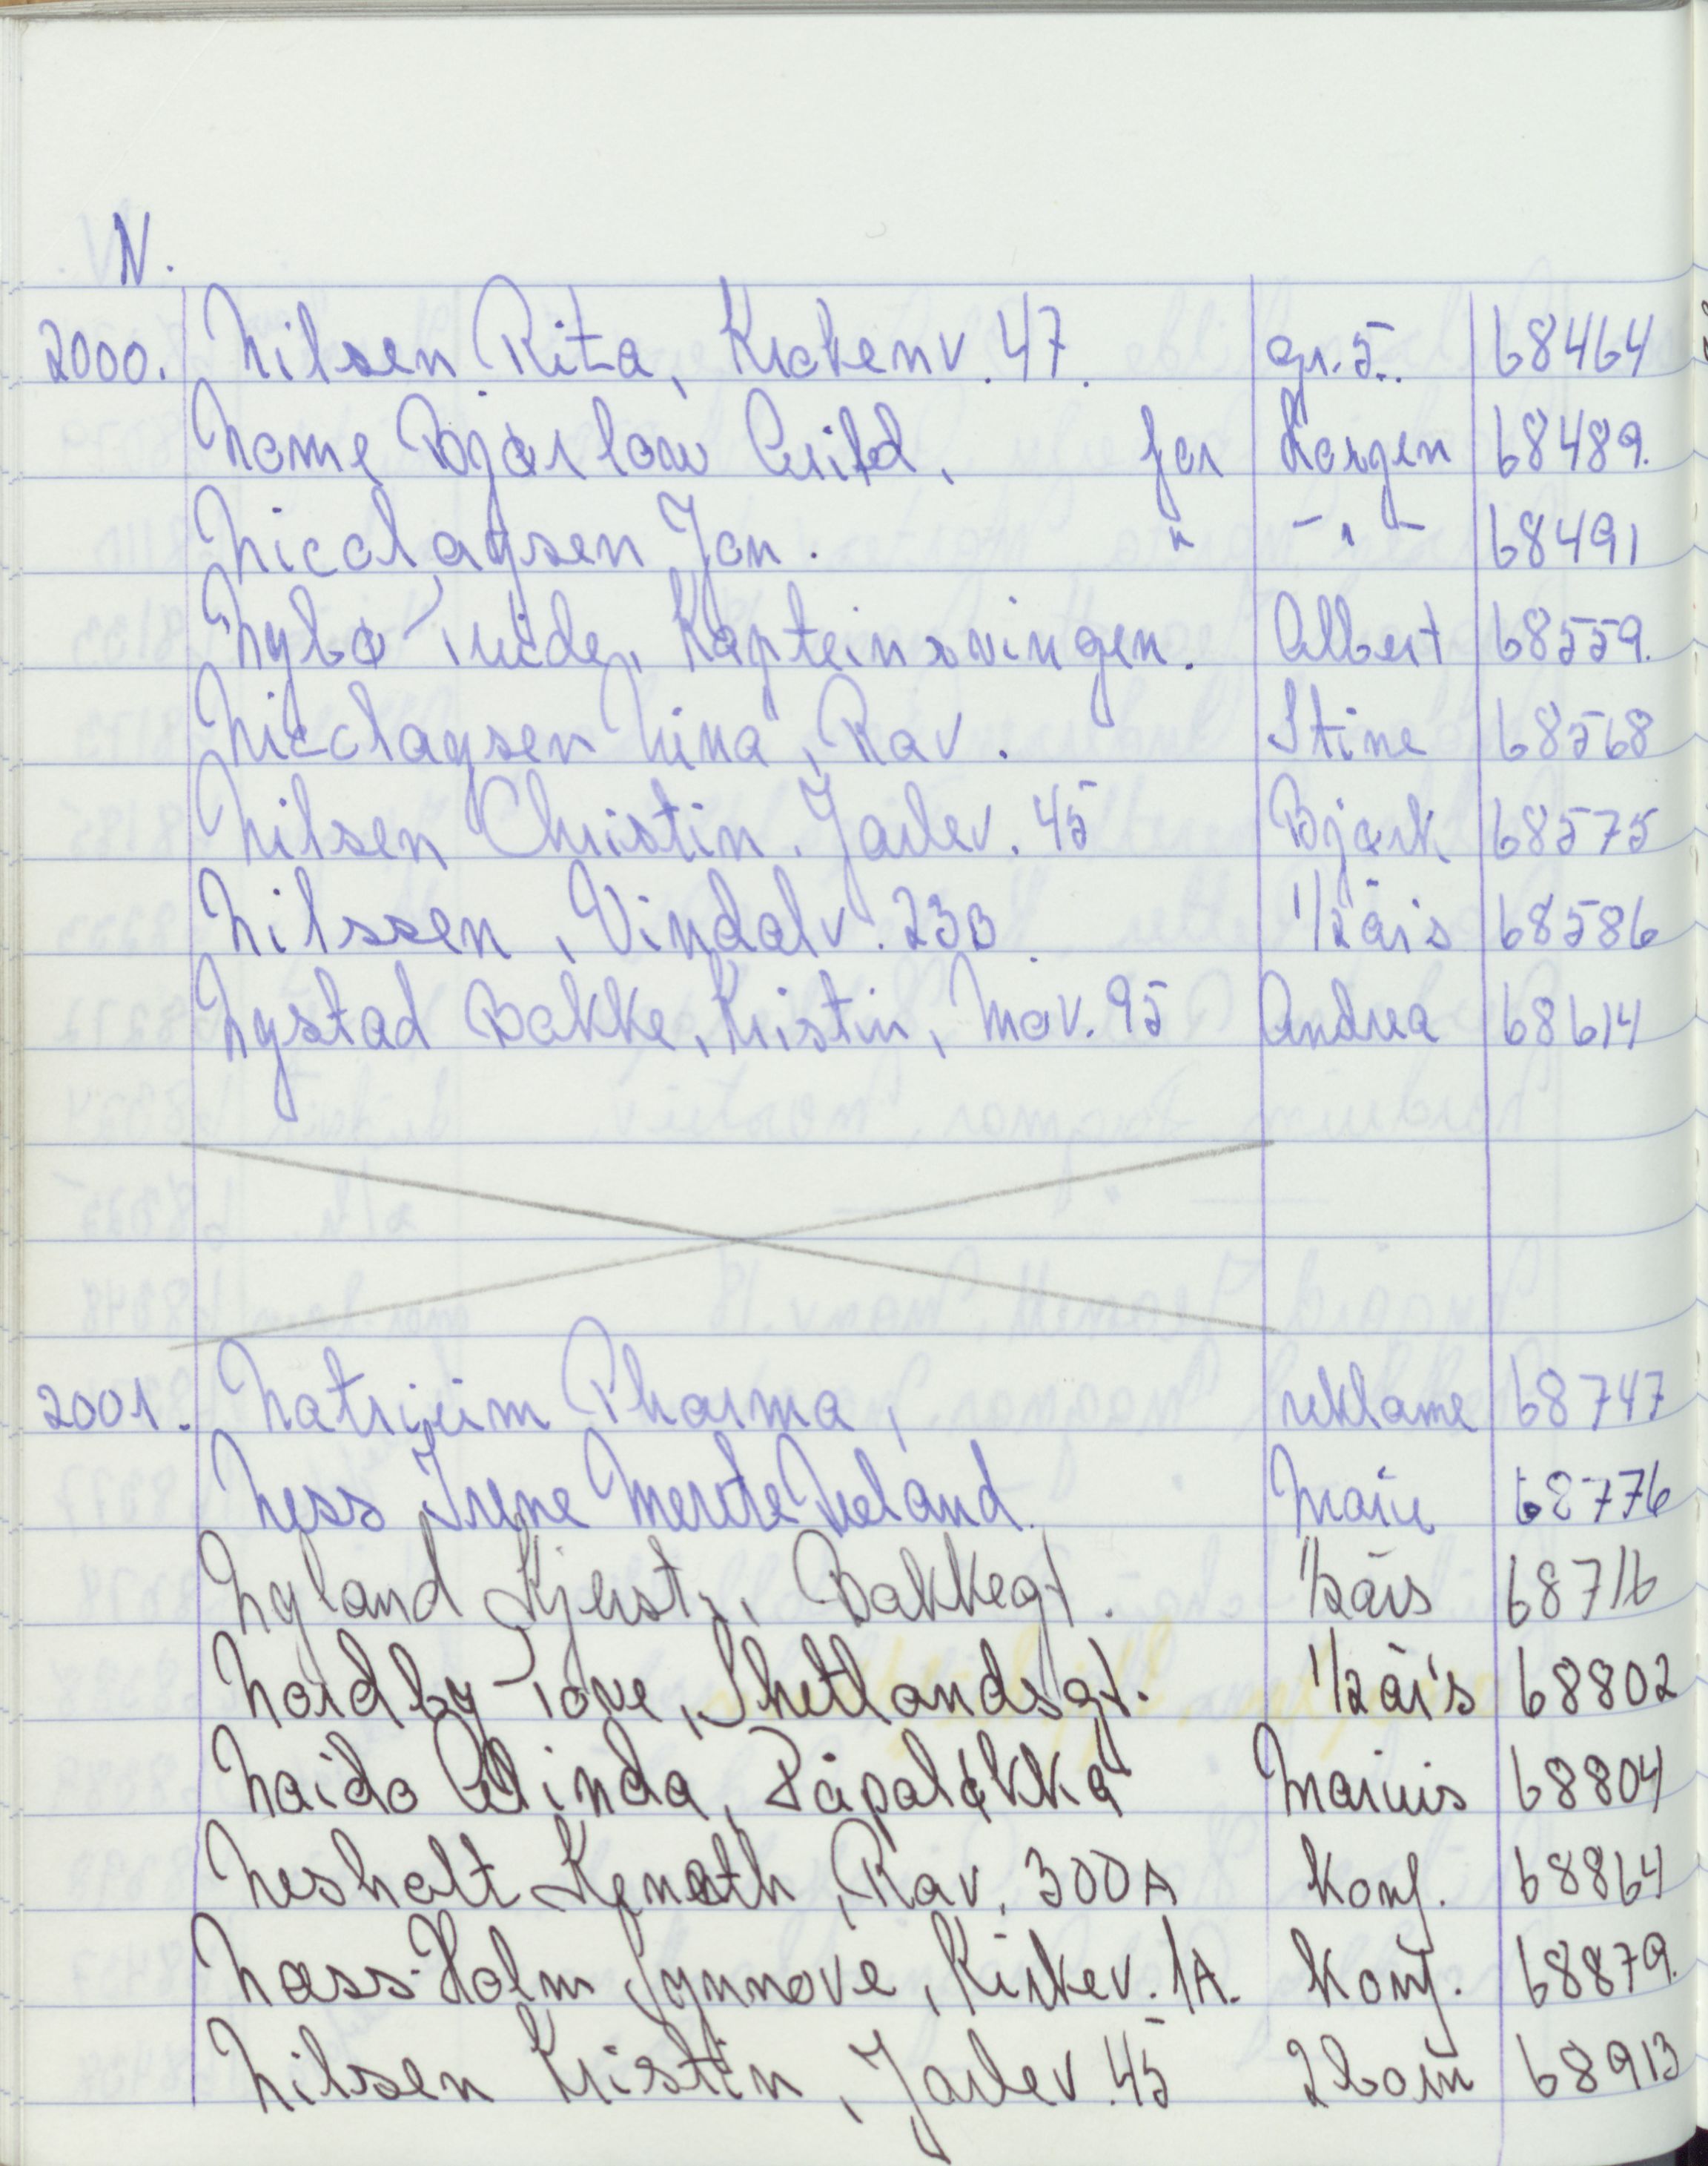 N.
2000. Nilsen Rita, Krokenv. 47. gr. 5. 68464
Nome Bjørlow Arild, for Korgen 68489.
Nicolaysen Jon. " - " - 68491
Nybø Turide, Kapteinsvingen. Albert 68559.
Nicolaysen Nina, Rav. Stine 68568
Nilsen Christin. Jarlev. 45 Bjørk 68575
Nilssen, Vindalv. 23B 1/2års 68586
Nystad Bakke, Kristin, Mov. 95 Andrea 68614
2001. Natrium Pharma, reklame 68747
Ness Irene Merete Meland. Marie 68776
Nyland Kjersti, Bakkegt. 1/2års 68716
Nordby Tove, Shetlandsgt. 1/2års 68802
Naido Linda, Påpaløkka Marius 68804
Nesholt Kenneth, Rav. 300A Konf. 68864
Næss-Holm Synnøve, Kirkev. 1A. Konf. 68879.
Nilsen Kristin, Jarlev. 45 2barn 68913